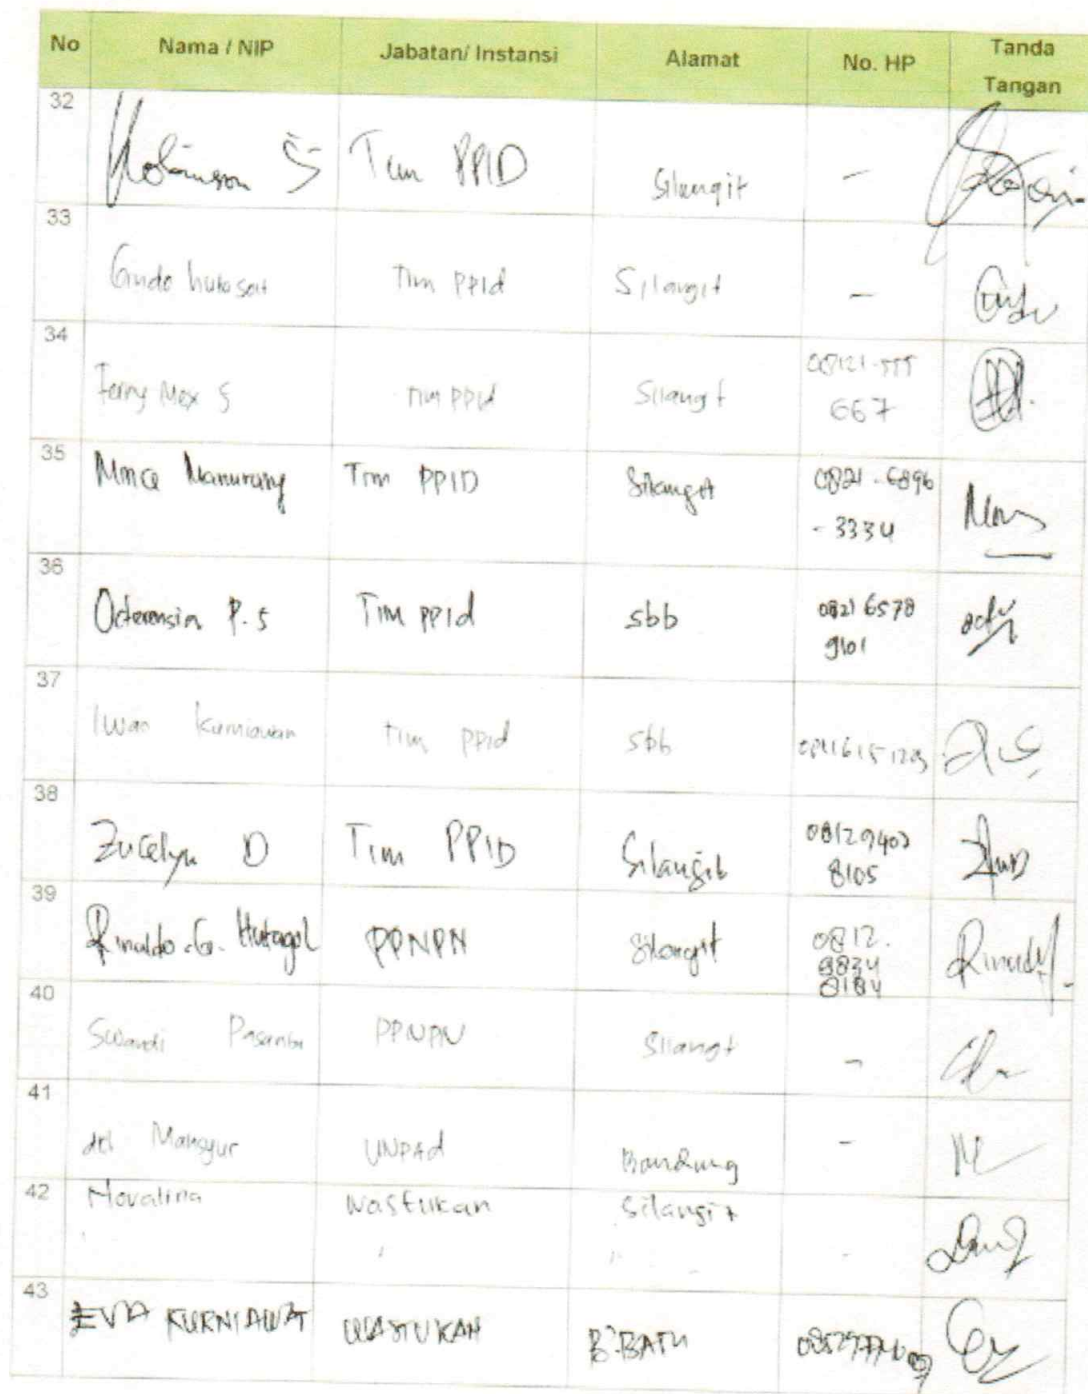 No Nama / NIP Jabatan/ Instansi Alamat No. HP Tanda
Tangan
32 Robinson S Tim PPID Silangit -
33 Gudo hutasoit Tim PPId Silangit -
34 Ferry Mex S Tim PPId Silangit 08121-555
667
35 Manurung Tim PPID Silangit 0821-6896
-3334
36 P.S Tim PPId sbb 0821 6578
9101
37 Iwan Kurniawan Tim PPId sbb
38 Zucelyn D Tim PPID Silangit 08129402
8105
39 Rinaldo .G. Hutagol PPNPN Silangit 0812.
8834
8184
40 Swandi Pasaribu PPNPN Silangit -
41 Mansyur UNPAd Bandung -
42 Novalina Wastukan Silangit -
43 EVA KURNIAWAT WASTUKAN B.BATU